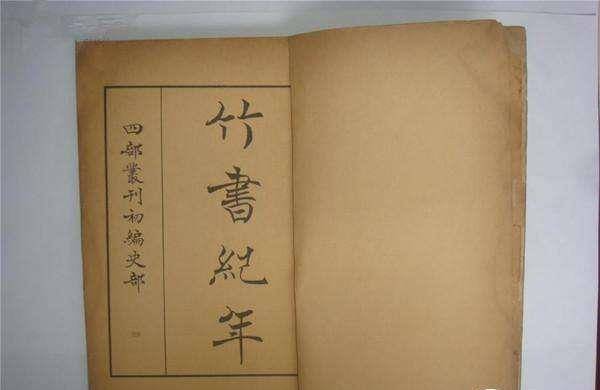 竹書紀年
四部叢刊初編史部